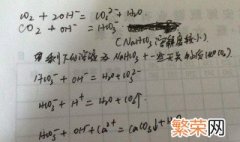 CO₂ + 2OH⁻ = CO₃²⁻ + H₂O
CO₂ + OH⁻ = HCO₃⁻
(NaHCO₃溶解度较小)
剩下的溶液为 NaHCO₃ +
HCO₃⁻ + OH⁻ = H₂O + CO₃²⁻
HCO₃⁻ + H⁺ = H₂O + CO₂↑
HCO₃⁻ + OH⁻ + Ca²⁺ = CaCO₃↓ + H₂O
繁荣网